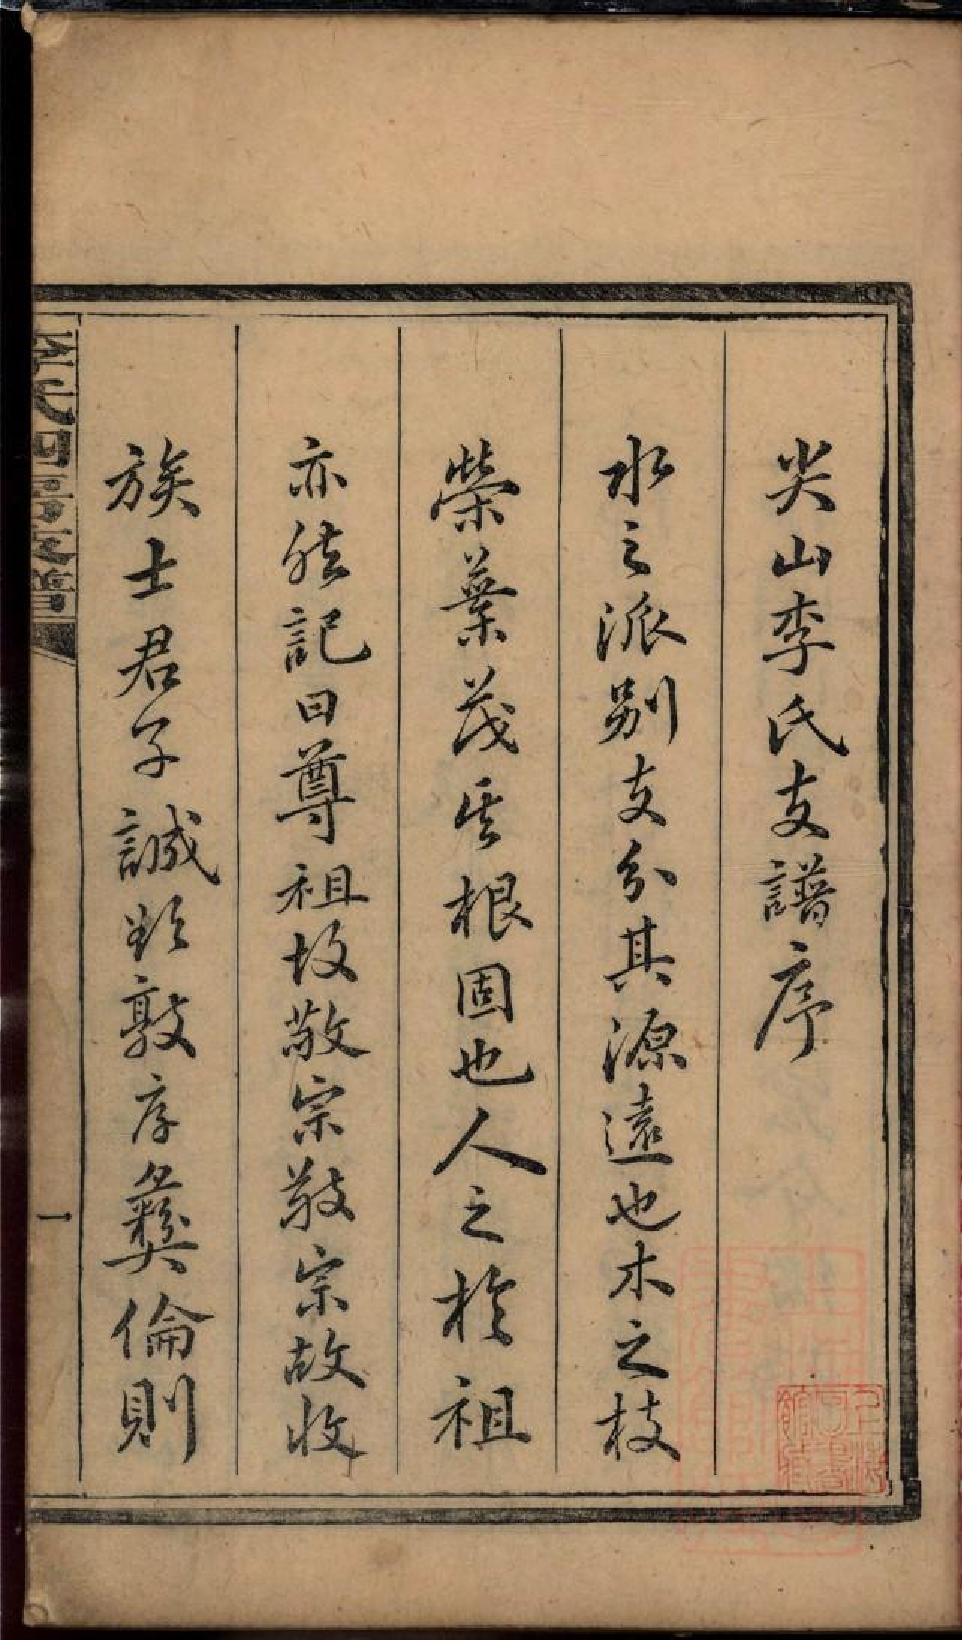 尖山李氏支譜序
水之派別支分其源遠也木之枝
榮葉茂其根固也人之於祖
亦然記曰尊祖故敬宗敬宗故收
族士君子誠欲敦序彝倫則
李氏四房支譜
一
上海圖書館藏